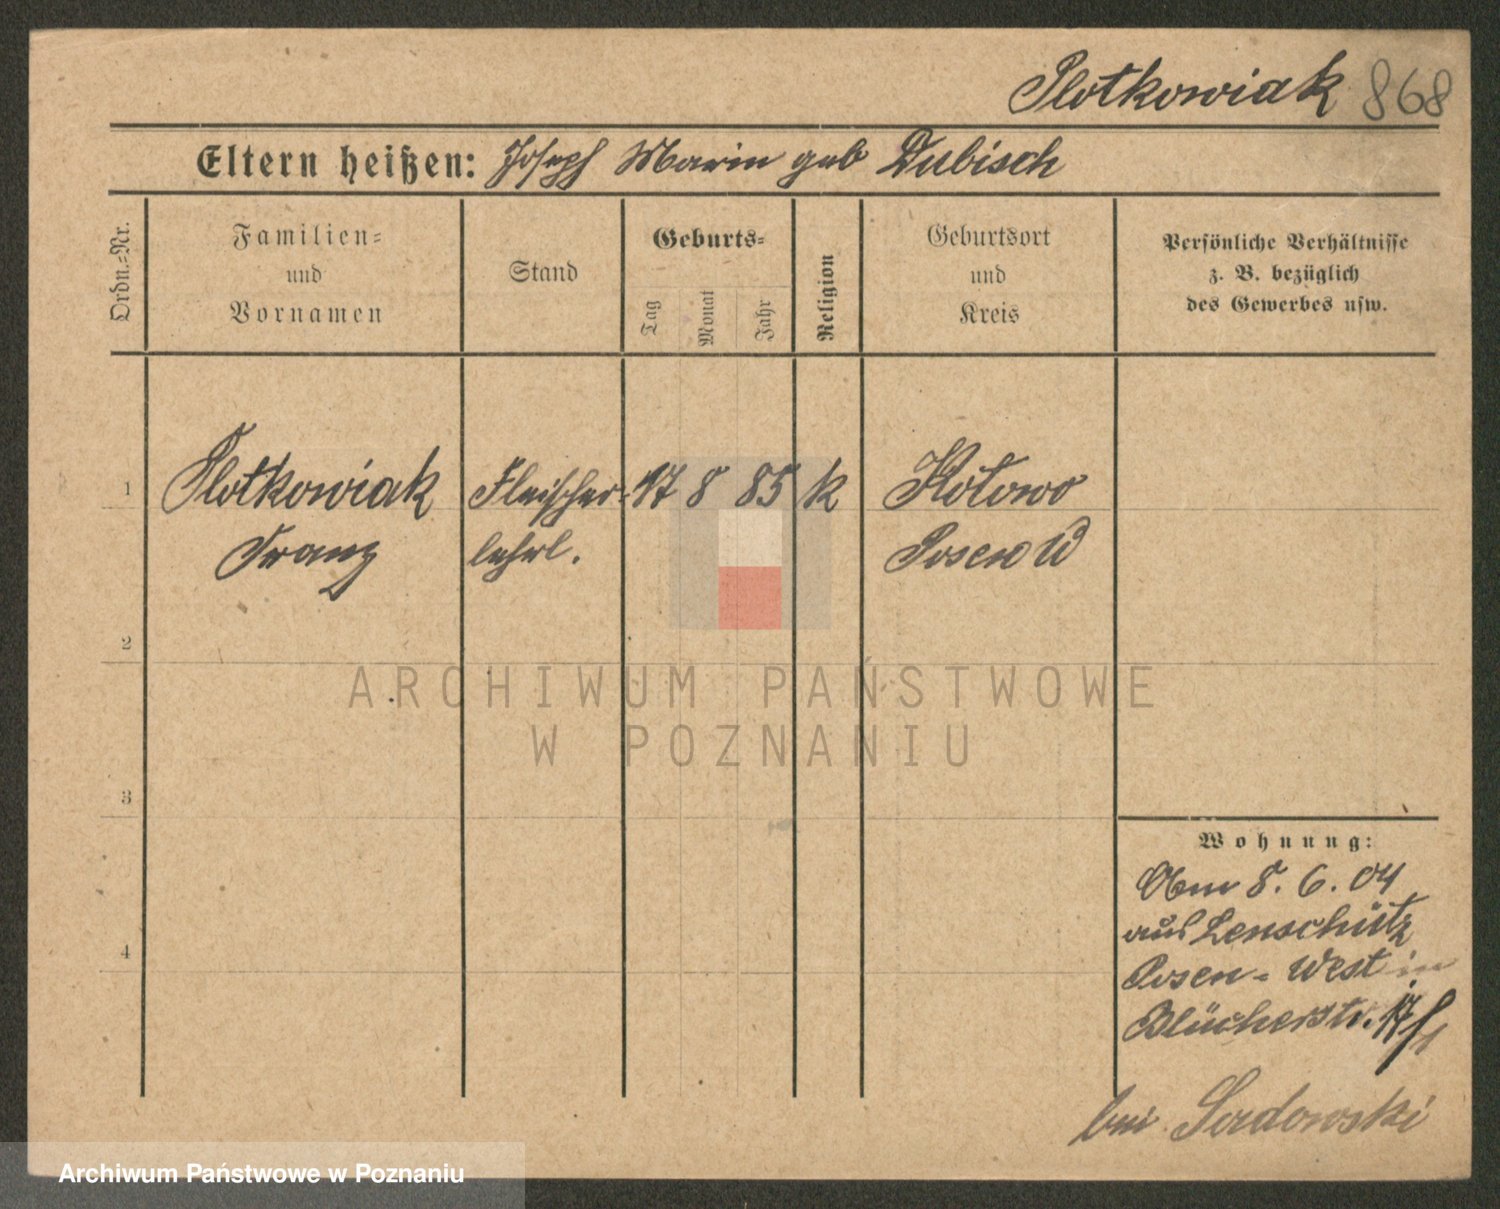 Plotkowiak 868
Eltern heißen: Joseph Marie geb Dubisch
Ordn.=Nr.
Familien=
und
Vornamen
Stand
Geburts=
Tag
Monat
Jahr
Religion
Geburtsort
und
Kreis
Persönliche Verhältnisse
z. B. bezüglich
des Gewerbes usw.
1
Plotkowiak
Franz
Fleischer=
lehrl.
17 8 85
k
Kotowo
Posen W
2
3
4
Wohnung:
8. 6. 04
aus Lenschütz
Posen = West in
Blücherstr. 17
bei Sadowski
ARCHIWUM PAŃSTWOWE
W POZNANIU
Archiwum Państwowe w Poznaniu